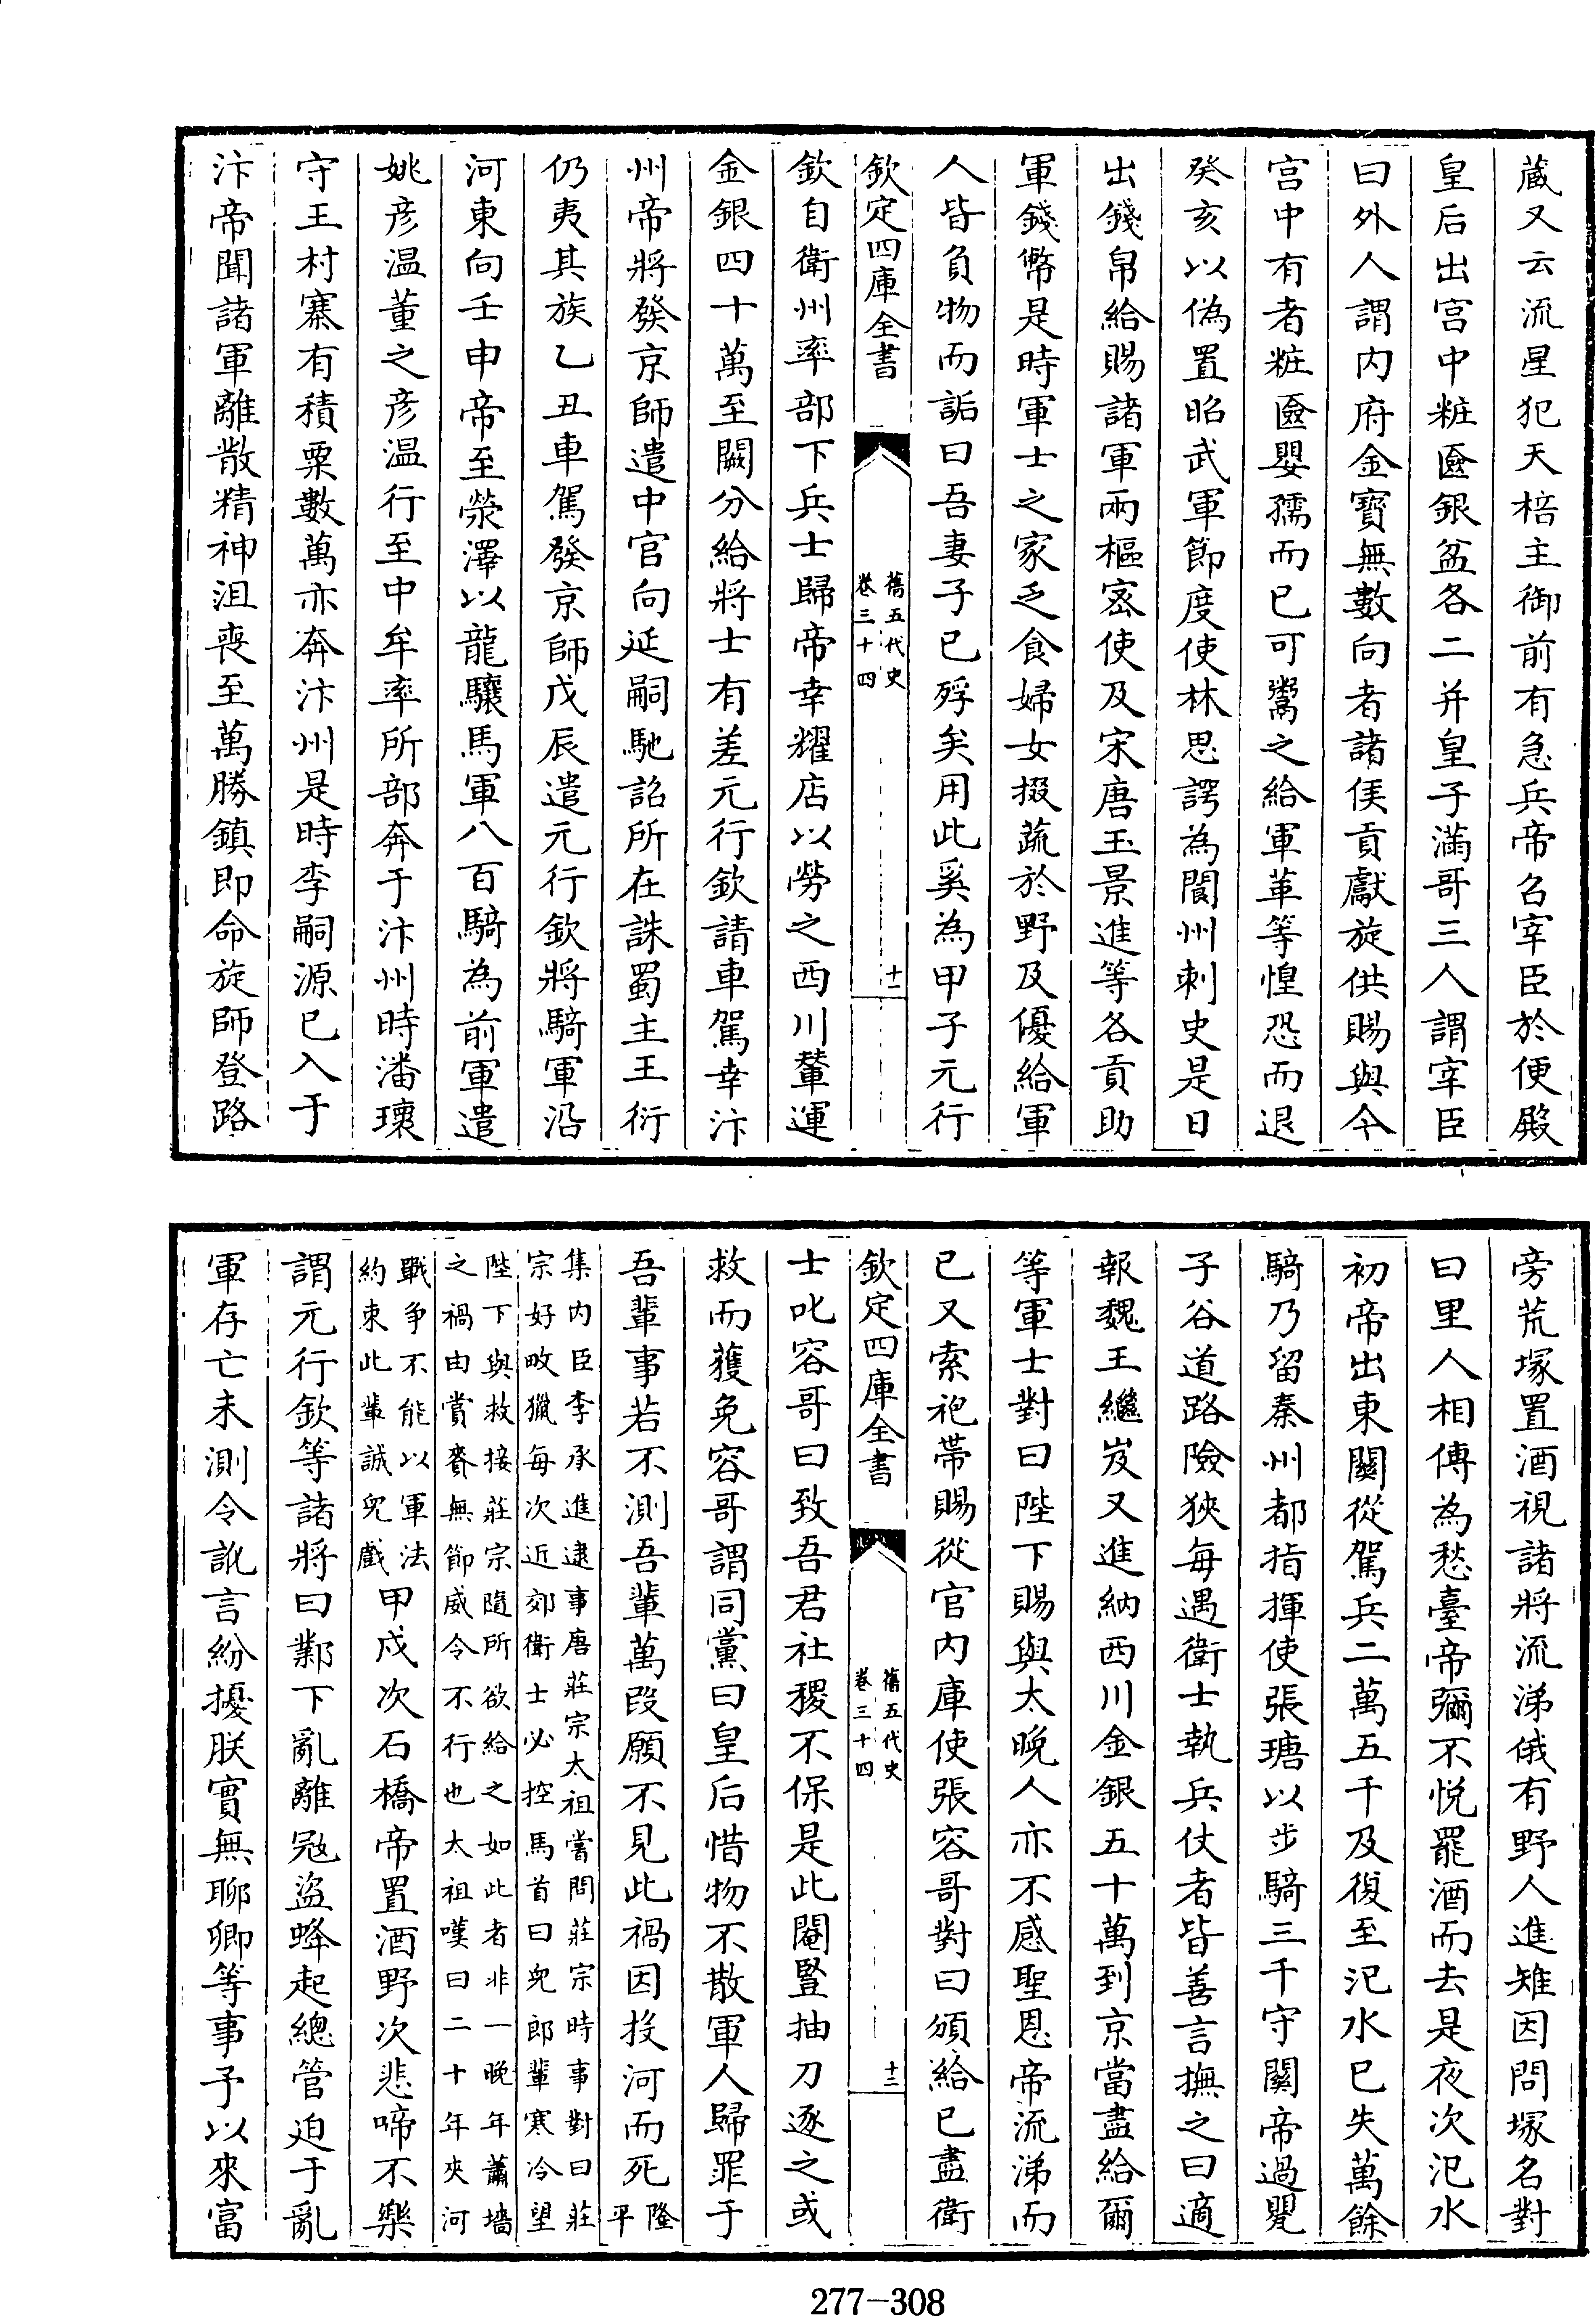 蔵又云流星犯天棓主御前有急兵帝召宰臣於便殿
皇后出宫中粧匳銀盆各二并皇子滿哥三人謂宰臣
曰外人謂内府金寳無數向者諸侯貢獻旋供賜與今
宫中有者粧匳嬰孺而已可鬻之給軍革等惶恐而退
癸亥以偽置昭武軍節度使林思諤為閬州刺史是日
出錢帛給賜諸軍兩樞宻使及宋唐玉景進等各貢助
軍錢幣是時軍士之家乏食婦女掇蔬於野及優給軍
人皆負物而詬曰吾妻子已殍矣用此奚為甲子元行
欽定四庫全書
舊五代史
卷三十四
十一
欽自衛州率部下兵士歸帝幸耀店以勞之西川輦運
金銀四十萬至闕分給將士有差元行欽請車駕幸汴
州帝將發京師遣中官向延嗣馳詔所在誅蜀主王衍
仍夷其族乙丑車駕發京師戊辰遣元行欽將騎軍沿
河東向壬申帝至滎澤以龍驤馬軍八百騎為前軍遣
姚彦温董之彦温行至中牟率所部奔于汴州時潘環
守王村寨有積粟數萬亦奔汴州是時李嗣源已入于
汴帝聞諸軍離散精神沮喪至萬勝鎮即命旋師登路
旁荒塚置酒視諸將流涕俄有野人進雉因問塚名對
曰里人相傳為愁臺帝彌不悦罷酒而去是夜次汜水
初帝出東關從駕兵二萬五千及復至汜水已失萬餘
騎乃留秦州都指揮使張瑭以步騎三千守關帝過罌
子谷道路險狹每遇衛士執兵仗者皆善言撫之曰適
報魏王繼岌又進納西川金銀五十萬到京當盡給爾
等軍士對曰陛下賜與太晚人亦不感聖恩帝流涕而
已又索袍帶賜從官内庫使張容哥對曰頒給已盡衛
欽定四庫全書
舊五代史
卷三十四
十二
士叱容哥曰致吾君社稷不保是此閹豎抽刀逐之或
救而獲免容哥謂同黨曰皇后惜物不散軍人歸罪于
吾輩事若不測吾輩萬段願不見此禍因投河而死隆
平
集内臣李承進逮事唐莊宗太祖嘗問莊宗時事對曰莊
宗好畋獵每次近郊衛士必控馬首曰兒郎輩寒冷望
陛下與救接莊宗隨所欲給之如此者非一晚年蕭墻
之禍由賞賚無節威令不行也太祖嘆曰二十年夾河
戰争不能以軍法
約束此輩誠兒戲
甲戌次石橋帝置酒野次悲啼不樂
謂元行欽等諸將曰鄴下亂離寇盗蜂起總管迫于亂
軍存亡未測令訛言紛擾朕實無聊卿等事予以來富
277-308